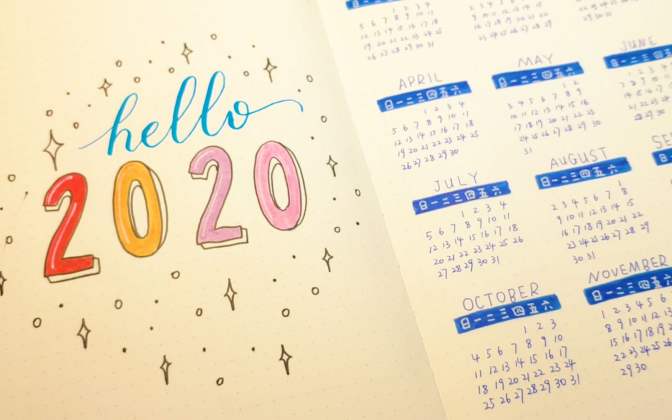 hello
2020
5 6 7 8 9 10 11
12 13 14 15 16 17 18
19 20 21 22 23 24 25
26 27 28 29 30 31
29 30 31
APRIL
日一二三四五六
1 2 3 4
5 6 7 8 9 10 11
12 13 14 15 16 17 18
19 20 21 22 23 24 25
26 27 28 29 30
MAY
日一二三四五六
1 2
3 4 5 6 7 8 9
10 11 12 13 14 15 16
17 18 19 20 21 22 23
24 25 26 27 28 29 30
31
JUNE
日一二三四五
JULY
日一二三四五六
1 2 3 4
5 6 7 8 9 10 11
12 13 14 15 16 17 18
20 21 22 23 24 25 26
27 28 29 30 31
AUGUST
日一二三四五六
1
2 3 4 5 6 7 8
9 10 11 12 13 14 15
16 17 18 19 20 21 22
23 24 25 26 27 28 29
30 31
SE
OCTOBER
日一二三四五六
1 2 3
4 5 6 7 8 9 10
11 12 13 14 15 16 17
18 19 20 21 22 23 24
25 26 27 28 29 30 31
NOVEMBER
日一二三四五六
1 2 3 4 5
8 9 10 11
15 16 17 18
22 23 24 25
29 30